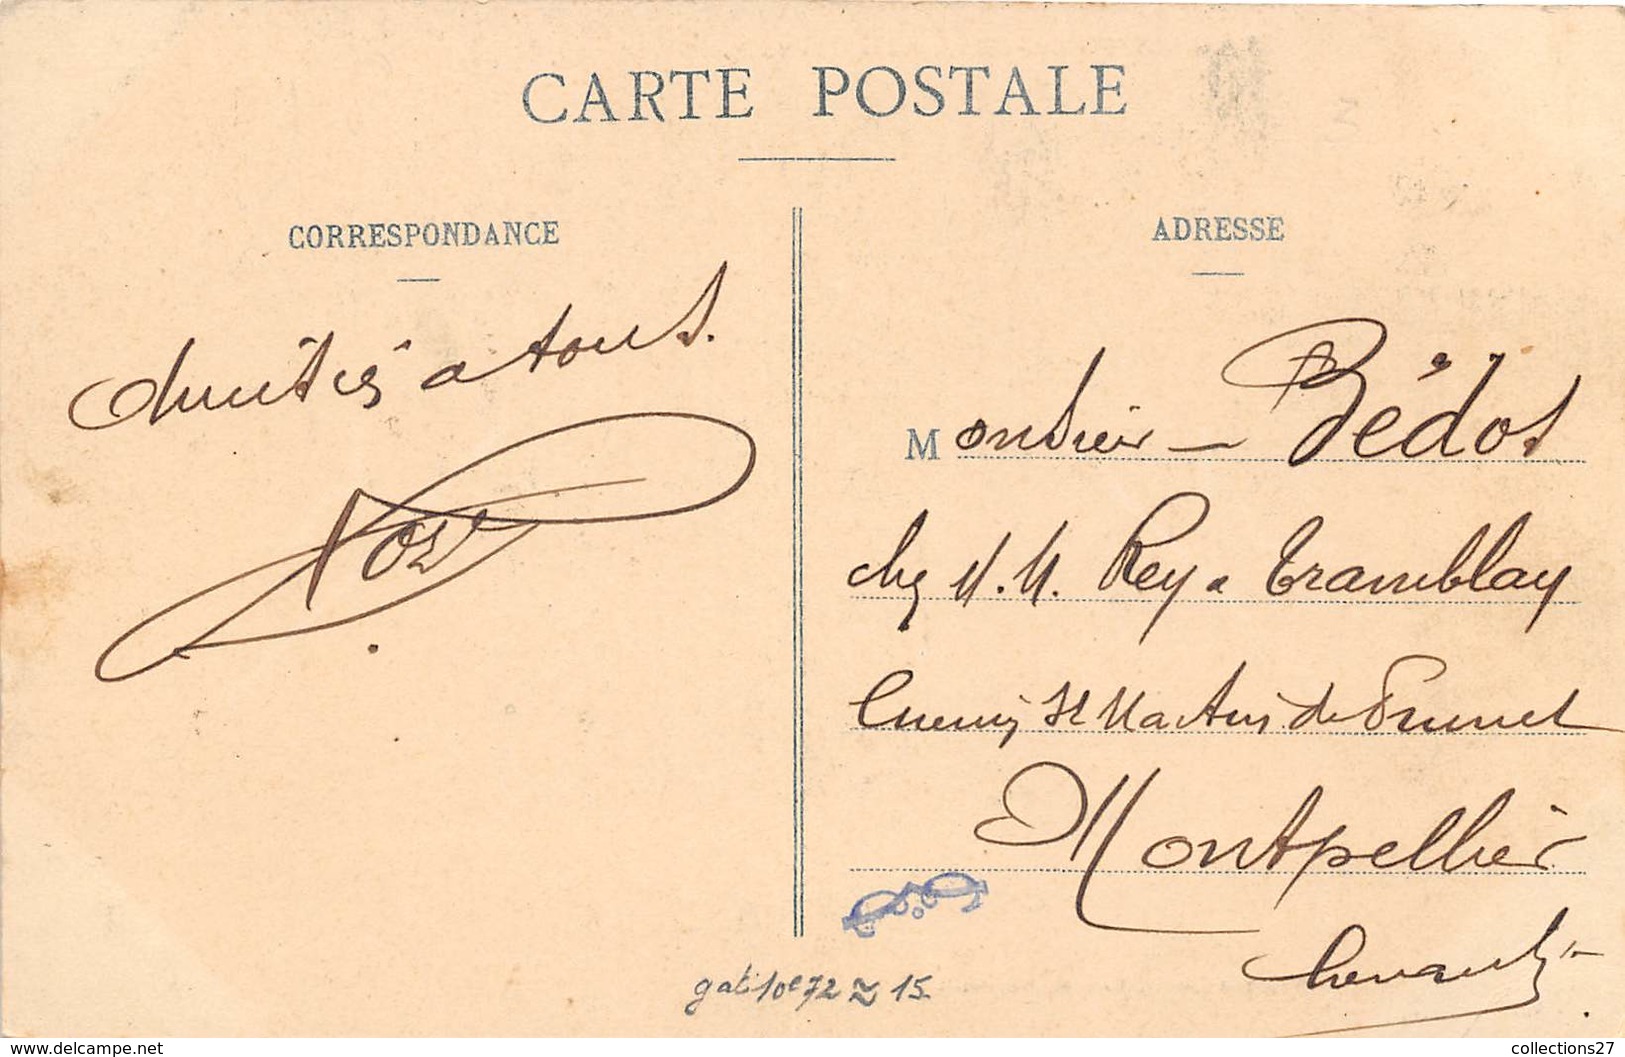 CARTE POSTALE
CORRESPONDANCE
amitiés a tous.
ADRESSE
Monsieur Bédos
chez M. M. Rey & Tramblay
Chemin St Martin de Prunet
Montpellier
Herault
gat 10e72 ≈ 15.
collections27